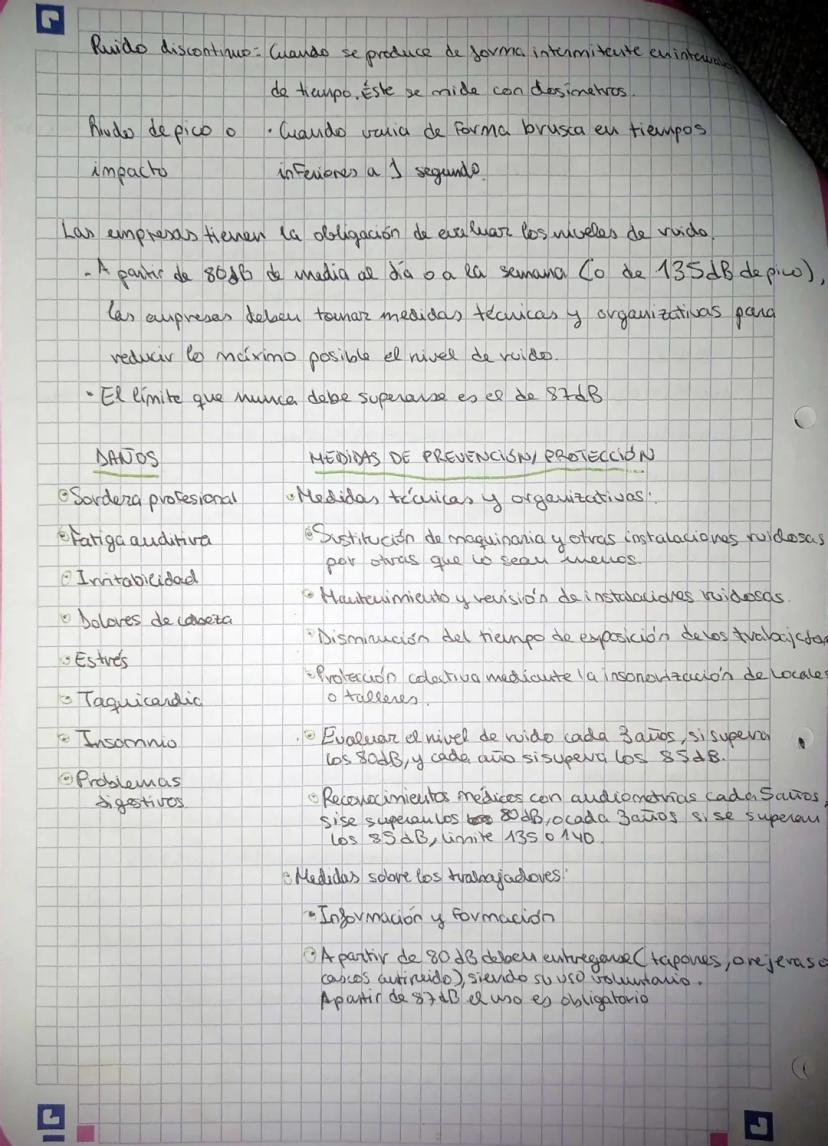 Ruido discontinuo: Cuando se produce de forma intermitente en intervalos
de tiempo. Éste se mide con dosímetros.
Ruido de pico o · Cuando varia de forma brusca en tiempos
impacto inferiores a 1 segundo.
Las empresas tienen la obligación de evaluar los niveles de ruido.
- A partir de 80dB de media al día o a la semana (o de 135dB de pico),
las empresas deben tomar medidas técnicas y organizativas para
reducir lo máximo posible el nivel de ruido.
· El límite que nunca debe superarse es el de 87dB
DAÑOS
Sordera profesional
Fatiga auditiva
Irritabilidad
Dolores de cabeza
Estrés
Taquicardia
Insomnio
Problemas
digestivos
MEDIDAS DE PREVENCIÓN/PROTECCIÓN
Medidas técnicas y organizativas:
Sustitución de maquinaria y otras instalaciones ruidosas
por otras que lo sean menos.
Mantenimiento y revisión de instalaciones ruidosas.
Disminución del tiempo de exposición de los trabajador
Protección colectiva mediante la insonorización de locales
o talleres.
Evaluar el nivel de ruido cada 3 años, si supera
los 80dB, y cada año si supera los 85dB.
Reconocimientos médicos con audiometrías cada 5 años,
si se superan los 80dB, o cada 3 años si se superan
los 85dB, límite 135 o 140.
Medidas sobre los trabajadores:
Información y formación
A partir de 80dB deben entregarse (tapones, orejeras o
cascos antiruido), siendo su uso voluntario.
A partir de 87dB el uso es obligatorio